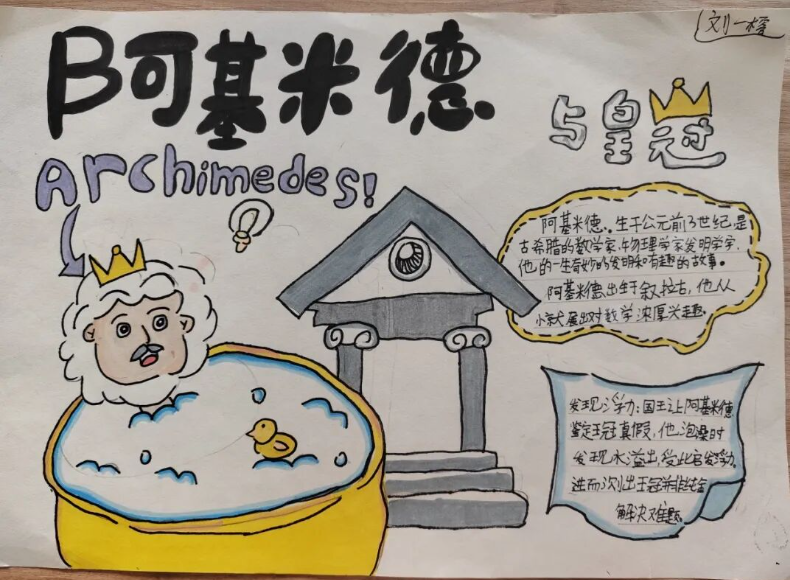 刘一榕
阿基米德
与皇冠
Archimedes!
?
阿基米德。生于公元前3世纪,是
古希腊的数学家、物理学家发明学家,
他的一生奇妙的发明和有趣的故事。
阿基米德出生于叙拉古,他从
小就展出对数学浓厚兴趣。
发现浮力:国王让阿基米德
鉴定王冠真假,他泡澡时
发现水溢出,受此启发浮力。
进而测出王冠并非纯金
解决难题。